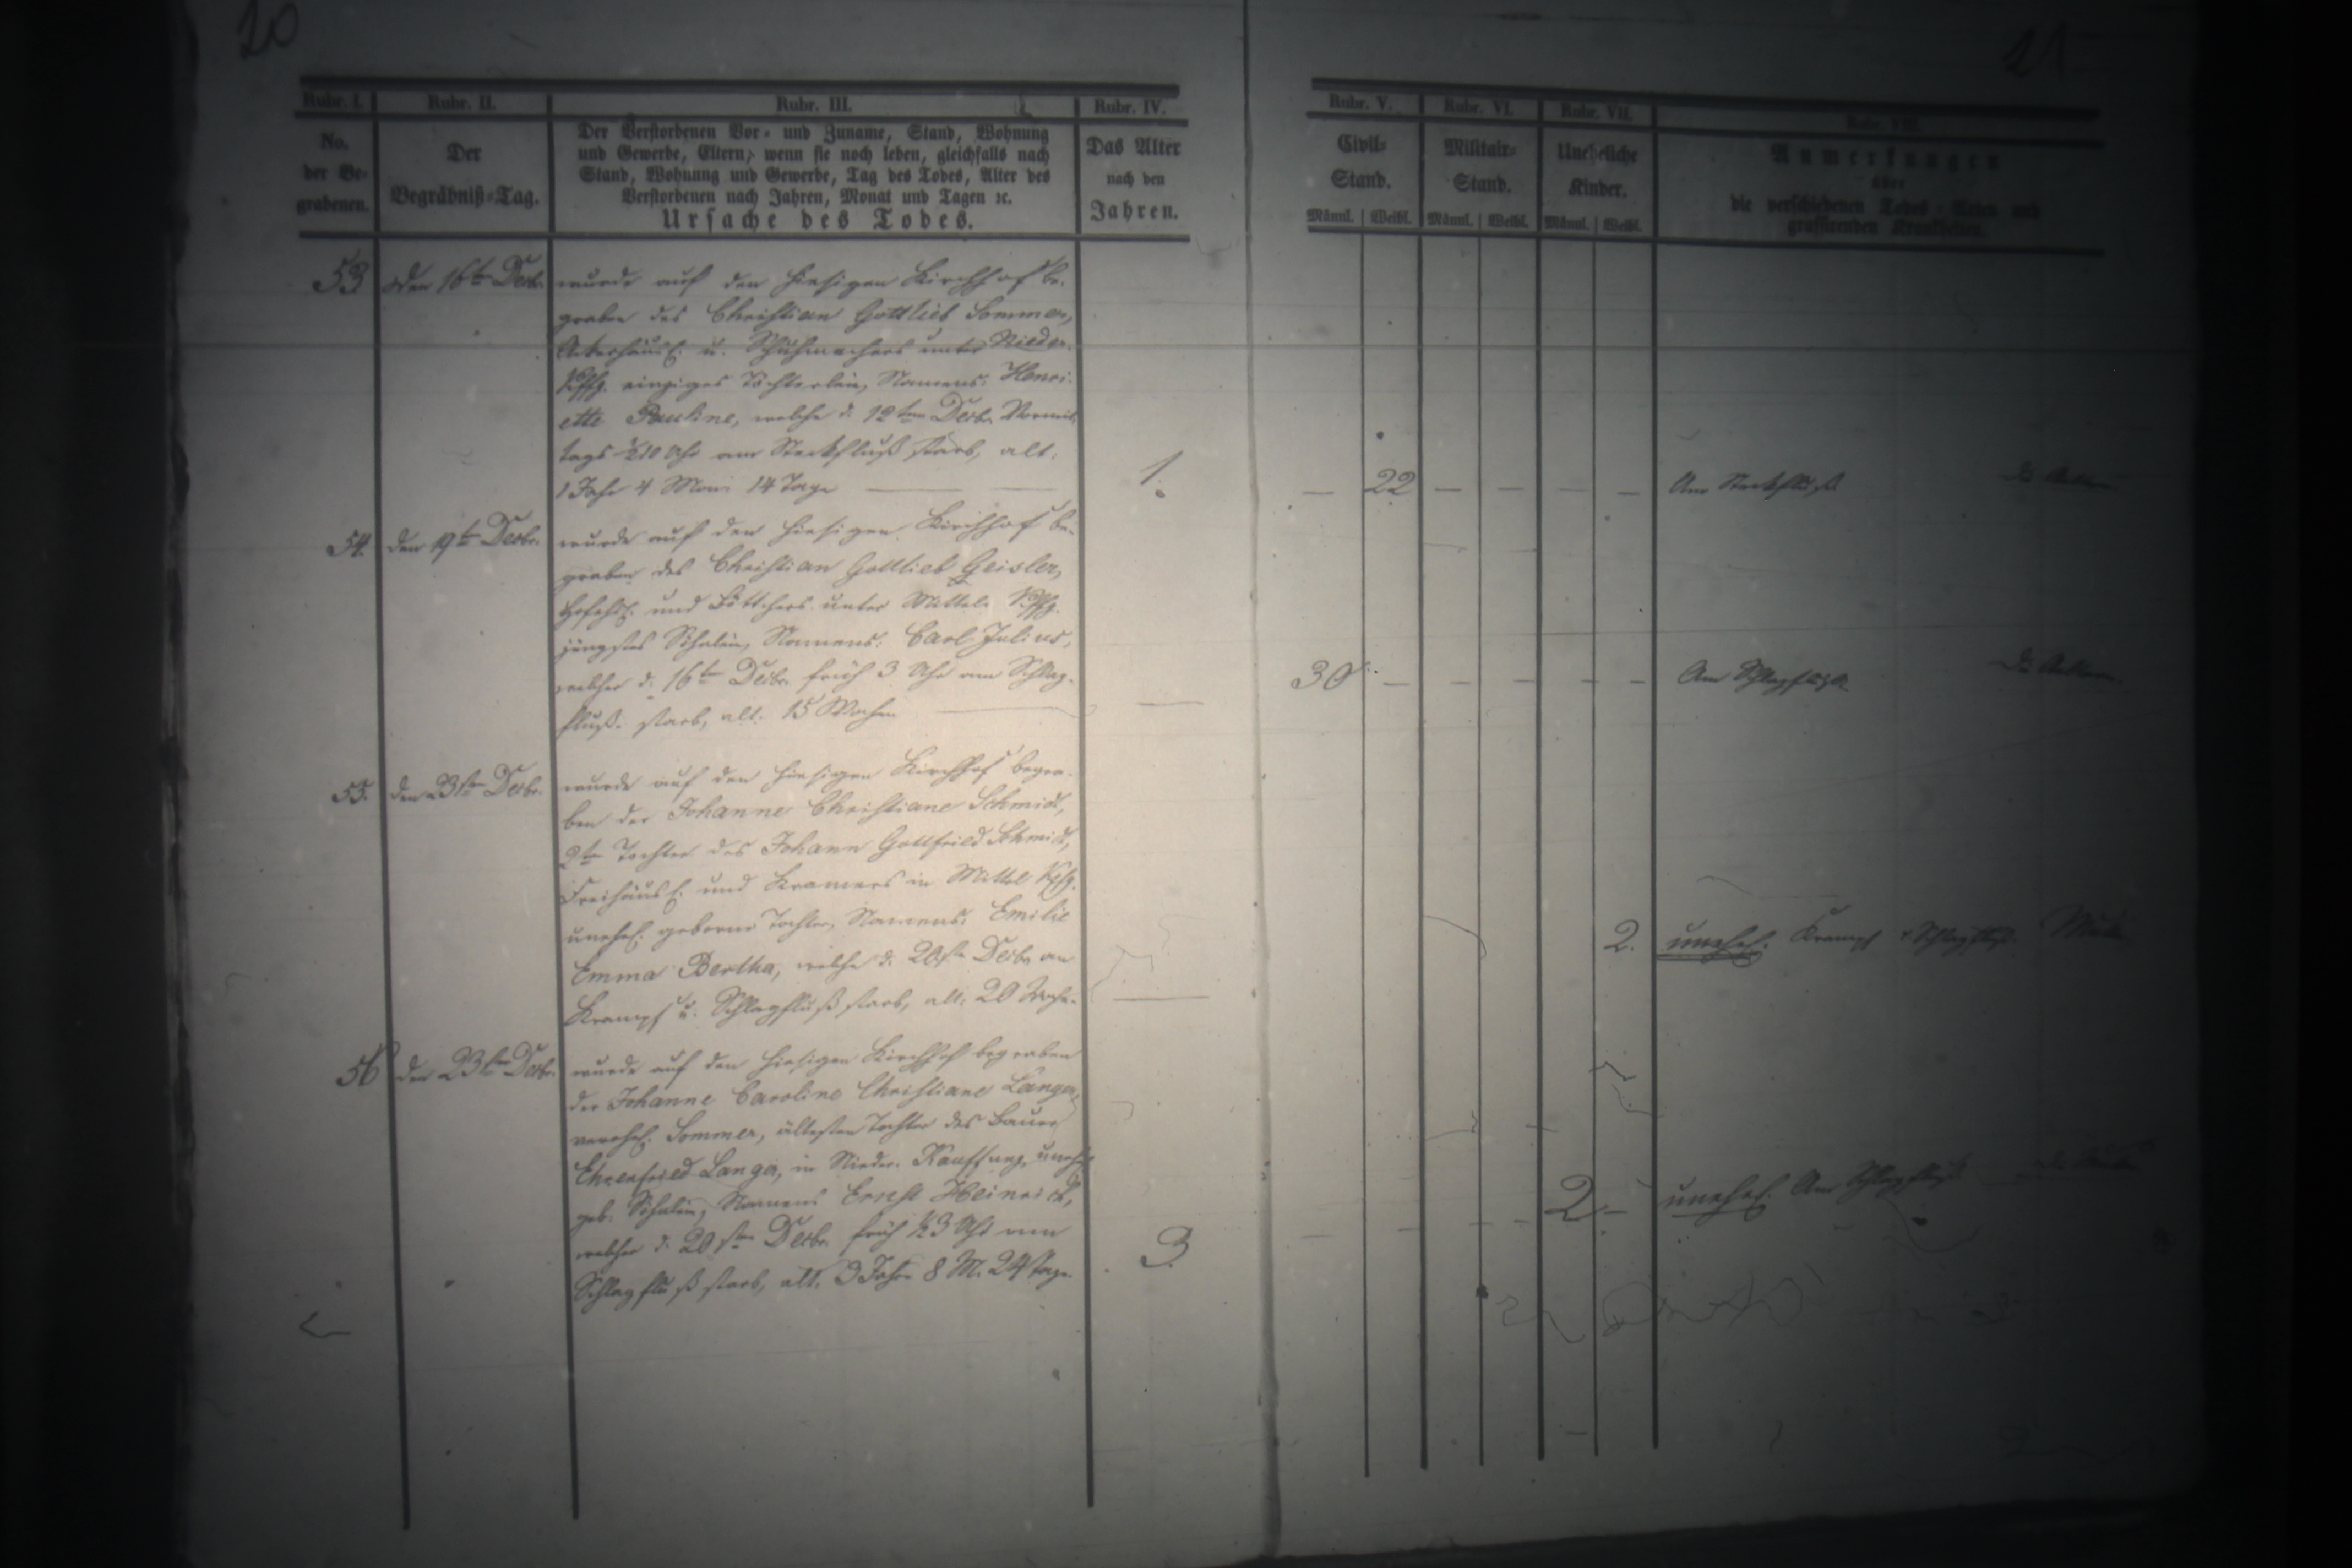 20
21
Rubr. I. Rubr. II. Rubr. III. Rubr. IV. Rubr. V. Rubr. VI. Rubr. VII. Rubr. VIII.
No. der Be-grabenen.
Der Begräbniß-Tag.
Der Verstorbenen Vor- und Zuname, Stand, Wohnung
und Gewerbe, Eltern, wenn sie noch leben, gleichfalls nach
Stand, Wohnung und Gewerbe, Tag des Todes, Alter des
Verstorbenen nach Jahren, Monat und Tagen ꝛc.
Ursache des Todes.
Das Alter
nach den
Jahren.
Civil-
Stand.
Männl. Weibl.
Militair-
Stand.
Männl. Weibl.
Uneheliche
Kinder.
Männl. Weibl.
Anmerkungen
über
die verschiedenen Todes-Arten und
grassirenden Krankheiten.
53 den 16ten Decbr. wurde auf den hiesigen Kirchhof be-
graben des Christian Gottlieb Sommer,
u. Schuhmachers unter Nieder-
Kffg. einziges Töchterlein, Namens: Henri-
ette Pauline, welche d. 12ten Decbr. Vormit-
tags ½10 Uhr am Steckfluß starb, alt:
1 Jahr 4 Mon: 14 Tage
1. — 22 — — — — Am Steckfluß
54. den 19ten Decbr. wurde auf den hiesigen Kirchhof be-
graben des Christian Gottlieb Geisler,
und Böttchers unter Mittel Kffg.
jüngstes Söhnlein, Namens: Carl Julius,
welcher d. 16ten Decbr. früh 3 Uhr am Schlag-
fluß starb, alt: 15 Wochen
— 30 — — — — — Am Schlagfluß
55. den 23sten Decbr. wurde auf den hiesigen Kirchhof begra-
ben der Johanne Christiane Schmidt,
2ten Tochter des Johann Gottfried Schmidt,
Freihäusl. und Kramers in Mittel Kffg.
unehel. geborne Tochter, Namens: Emilie
Emma Bertha, welche d. 20sten Decbr. an
Krampf u. Schlagfluß starb, alt: 20 Woch.
— 2. unehel. Krampf u. Schlagfluß.
56 den 23sten Decbr. wurde auf den hiesigen Kirchhof begraben
der Johanne Caroline Christiane Langer,
verehel. Sommer, ältesten Tochter des Bauer
Ehrenfried Langer, in Nieder-Kauffung, unehel.
geb. Söhnlein, Namens Ernst Heinrich,
welcher d. 20sten Decbr. früh ½3 Uhr am
Schlagfluß starb, alt: 3 Jahr 8 M. 24 Tage.
3. — — — — 2 — unehel. Am Schlagfluß